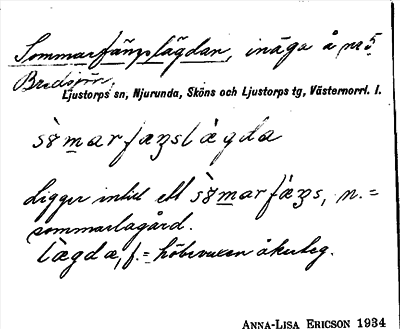 Sommarfänslägdan, inäga å nr 5
Bredsjön,
Ljustorps sn, Njurunda, Sköns och Ljustorps tg, Västernorrl. l.
sömarfäŋslägda
ligger intill ett sömarfäŋs, n. =
sommarlagård.
lägda, f. = höbevuxen åkerteg.
ANNA-LISA ERICSON 1934